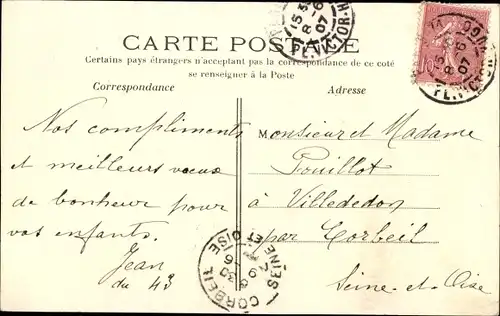 CARTE POSTALE
Certains pays étrangers n'acceptant pas la correspondance de ce coté
se renseigner à la Poste
Correspondance
Adresse
Nos compliments
et meilleurs vœux
de bonheur pour
vos enfants.
Jean
du 43
Monsieur et Madame
Pouillot
à Villededon
par Corbeil
Seine-et-Oise
CORBEIL
SEINE ET OISE
PL. VICTOR-H
15
8-6
07
10